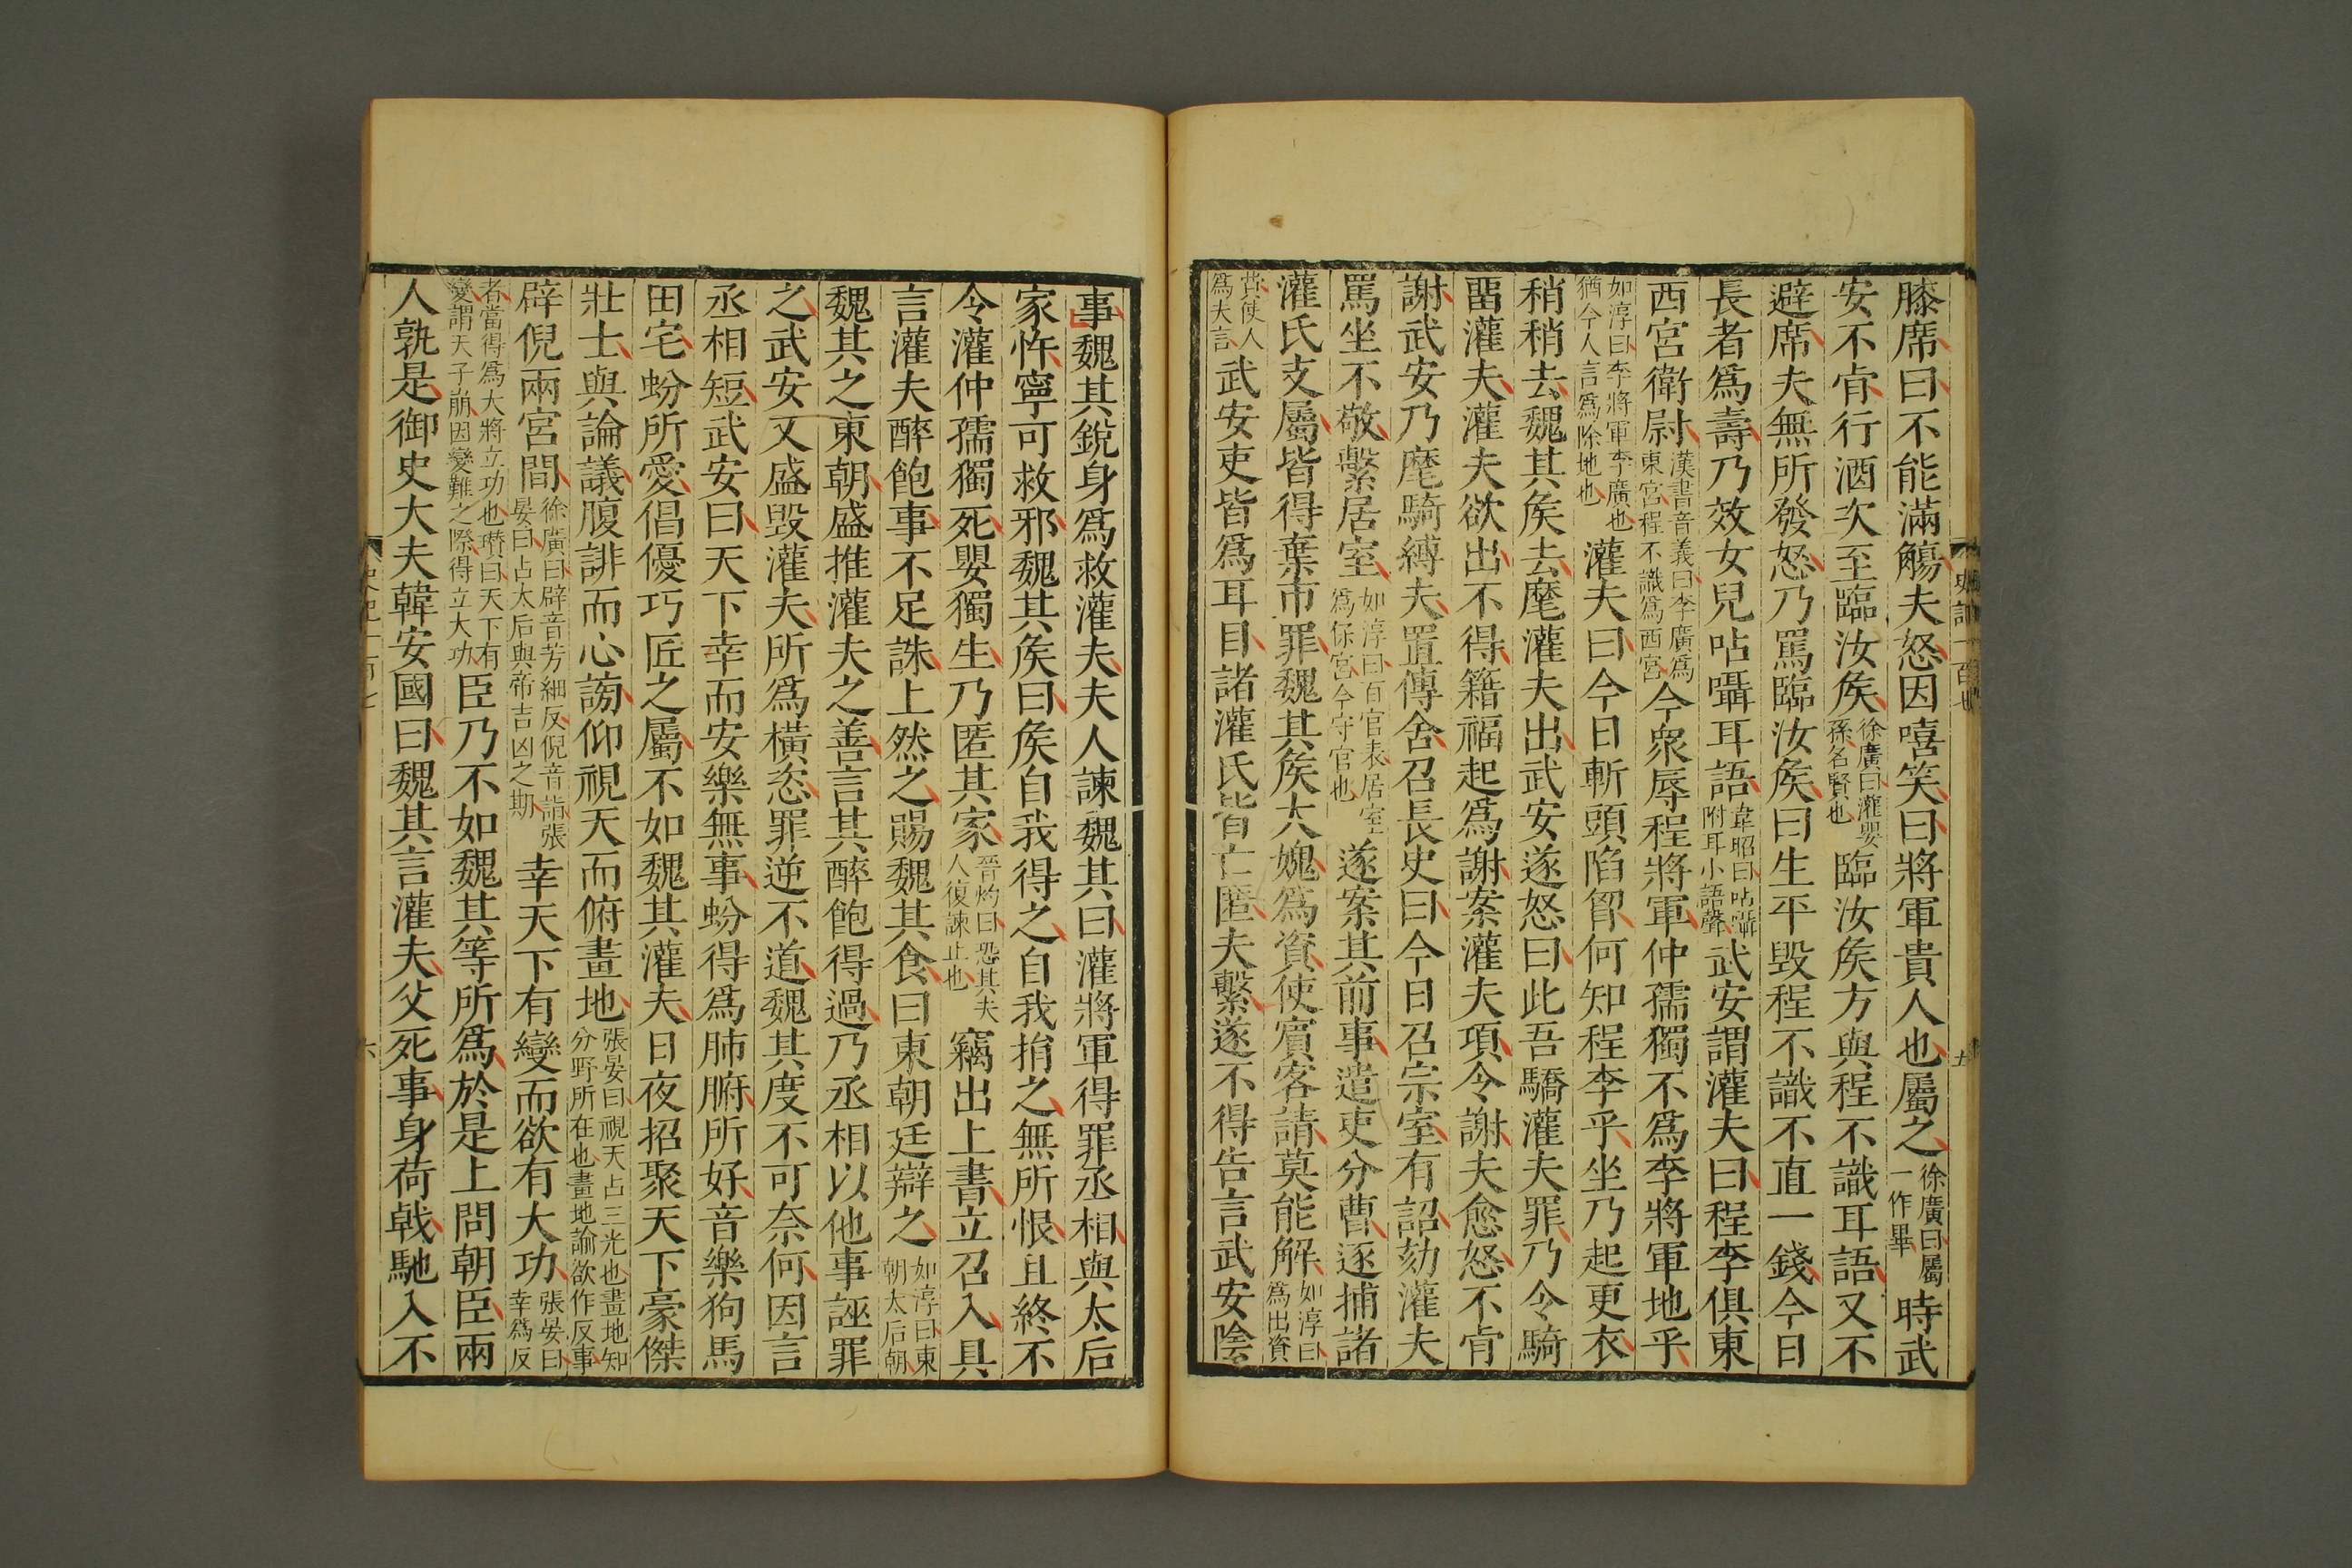 膝席曰不能滿觴夫怒因嘻笑曰將軍貴人也屬之徐廣曰屬一作畢時武
安不肯行酒次至臨汝矦徐廣曰灌嬰孫名賢也臨汝矦方與程不識耳語又不
避席夫無所發怒乃罵臨汝矦曰生平毁程不識不直一錢今日
長者爲壽乃效女兒呫囁耳語韋昭曰呫囁附耳小語聲武安謂灌夫曰程李俱東
西宮衛尉漢書音義曰李廣爲東宮程不識爲西宮今衆辱程將軍仲孺獨不爲李將軍地乎
如淳曰李將軍李廣也猶今人言爲除地也灌夫曰今日斬頭陷匈何知程李乎坐乃起更衣
稍稍去魏其矦去麾灌夫出武安遂怒曰此吾驕灌夫罪乃令騎
畱灌夫灌夫欲出不得籍福起爲謝案灌夫項令謝夫愈怒不肯
謝武安乃麾騎縛夫置傳舍召長史曰今日召宗室有詔劾灌夫
罵坐不敬繫居室如淳曰百官表居室爲保宮今守宮也遂案其前事遣吏分曹逐捕諸
灌氏支屬皆得棄市罪魏其矦大媿爲資使賓客請莫能解如淳曰爲出資
費使人爲夫言武安吏皆爲耳目諸灌氏皆亡匿夫繫遂不得告言武安陰
事魏其銳身爲救灌夫夫人諫魏其曰灌將軍得罪丞相與太后
家忤寧可救邪魏其矦曰矦自我得之自我捐之無所恨且終不
令灌仲孺獨死嬰獨生乃匿其家晉灼曰恐其夫人復諫止也竊出上書立召入具
言灌夫醉飽事不足誅上然之賜魏其食曰東朝廷辯之如淳曰東朝太后朝
魏其之東朝盛推灌夫之善言其醉飽得過乃丞相以他事誣罪
之武安又盛毁灌夫所爲橫恣罪逆不道魏其度不可奈何因言
丞相短武安曰天下幸而安樂無事蚡得爲肺腑所好音樂狗馬
田宅蚡所愛倡優巧匠之屬不如魏其灌夫日夜招聚天下豪傑
壯士與論議腹誹而心謗仰視天而俯畫地張晏曰視天占三光也畫地知分野所在也畫地諭欲作反事
辟倪兩宮間徐廣曰辟音芳細反倪音詣張晏曰占太后與帝吉凶之期幸天下有變而欲有大功張晏曰幸爲反
者當得爲大將立功也瓚曰天下有變謂天子崩因變難之際得立大功臣乃不如魏其等所爲於是上問朝臣兩
人孰是御史大夫韓安國曰魏其言灌夫父死事身荷戟馳入不